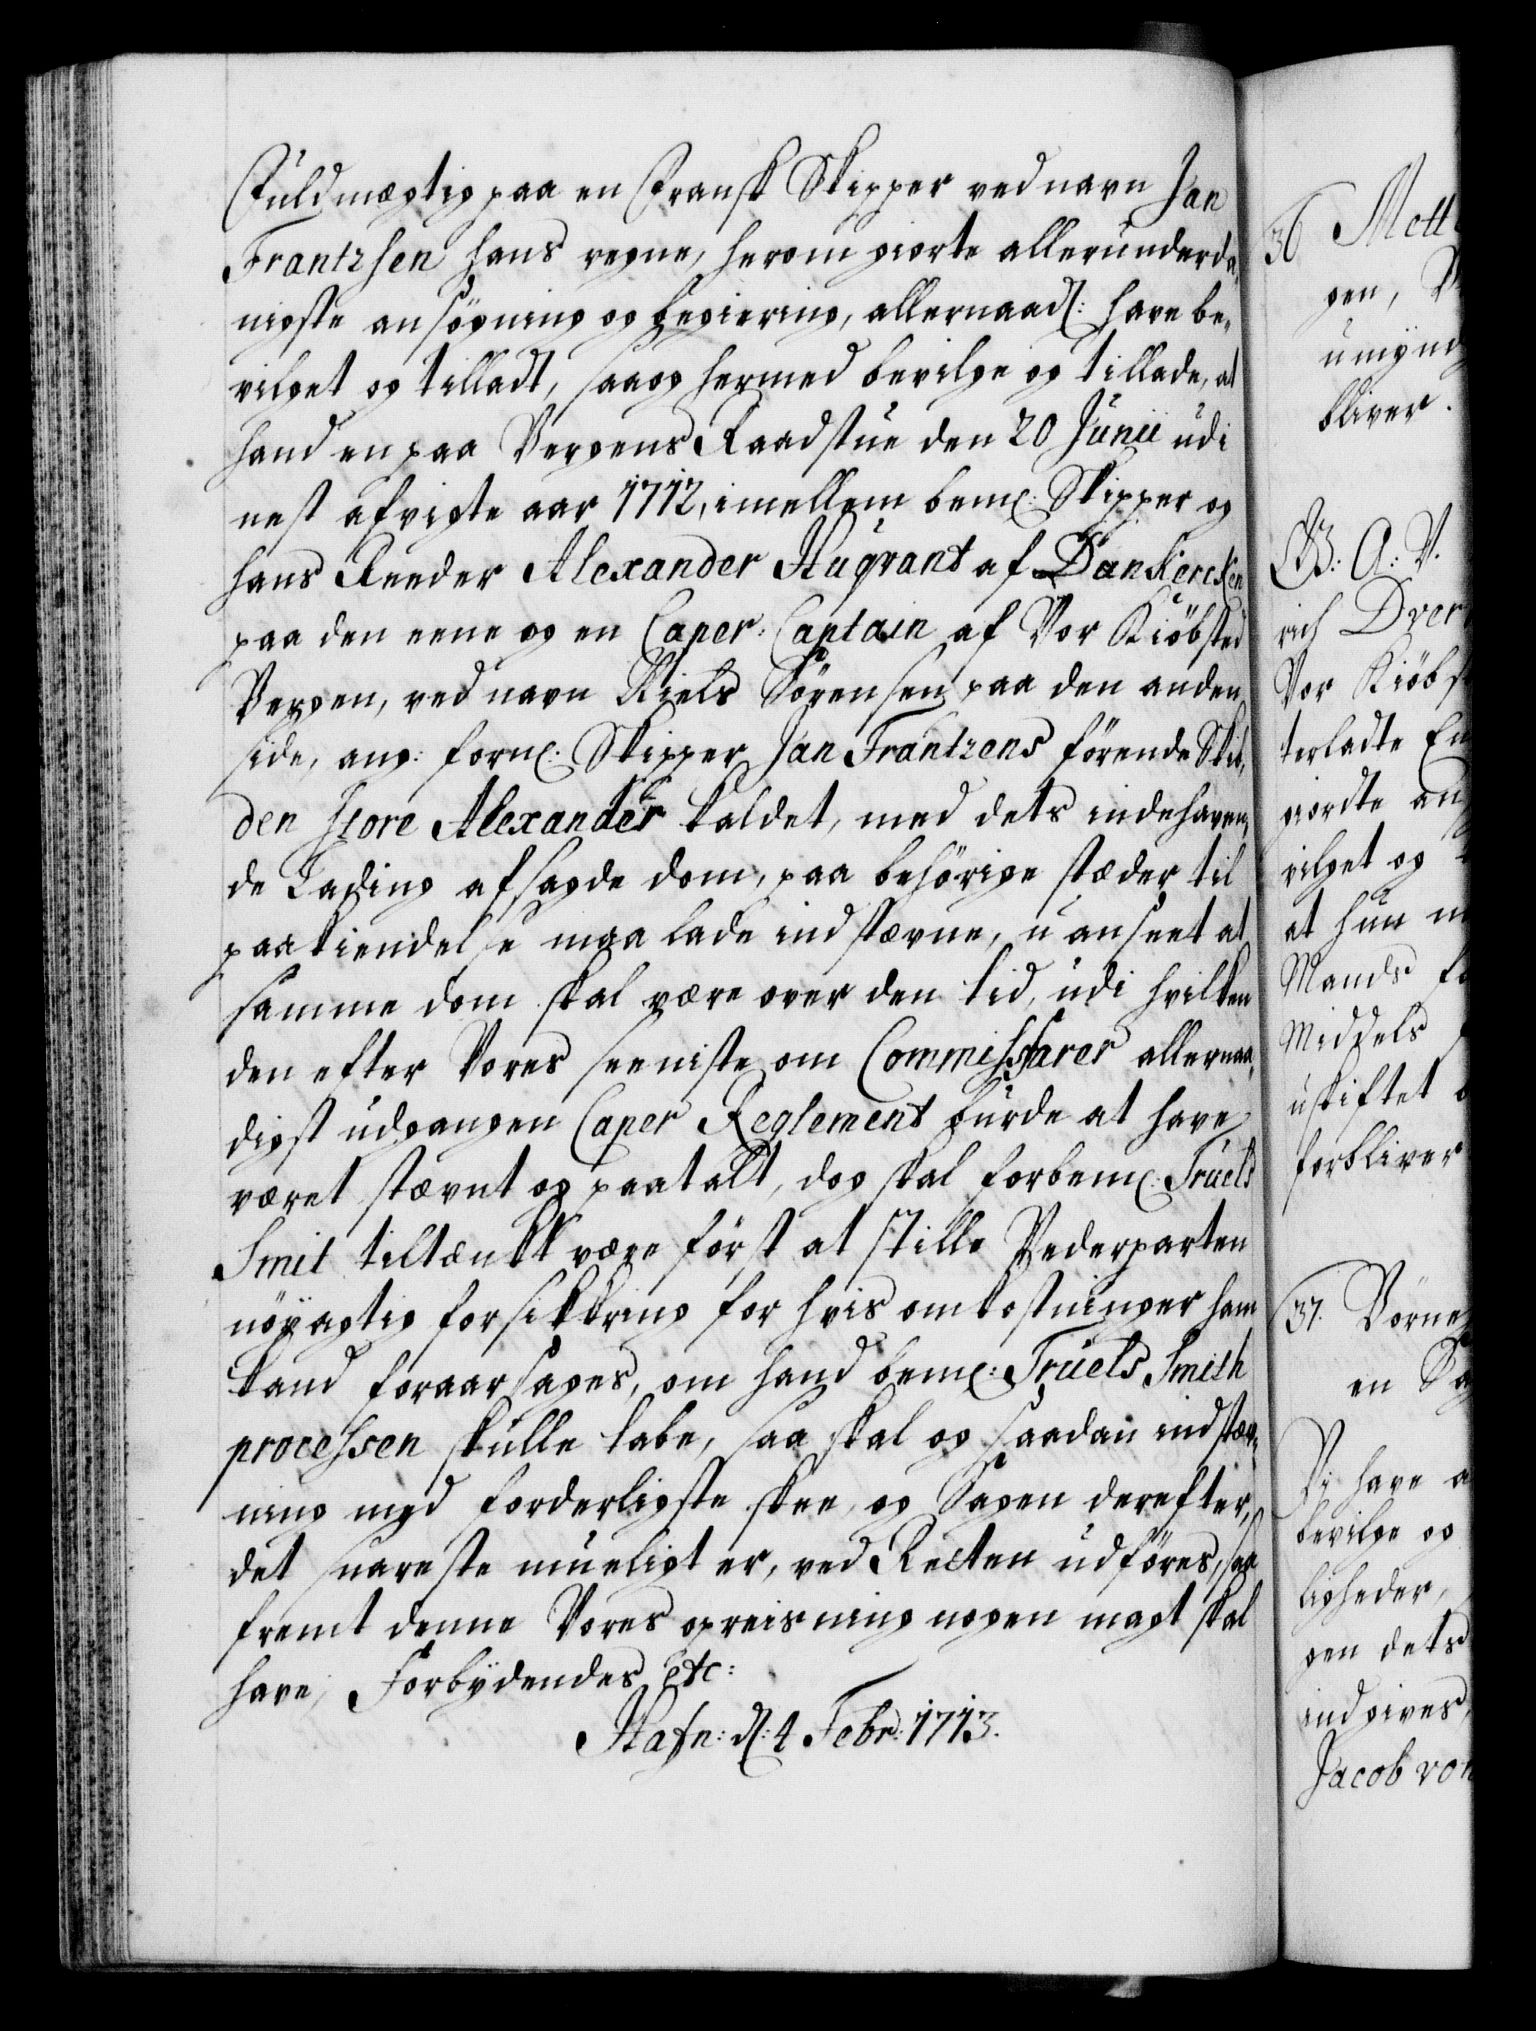 Fuldmægtig paa en Fransk Skipper ved navn Jan
Frantzsen hans vegne, herom giorte allerunderda¬
nigste ansøgning og begiering, allernaadl: have be¬
vilget og tilladt, saa og hermed bevilge og tillade, at
hand en paa Bergens Raadstue den 20 Junii udi
nest afvigte aar 1712, imellem bem: Skipper og
hans Reeder Alexander Huqvant af Dankercken
paa den eene og en Caper-Captain af Vor Kiöbsted
Bergen, ved navn Niels Sörensen paa den anden
side, ang: forn: Skipper Jan Frantzens förende Skib,
den store Alexander kaldet, med dets indehaven¬
de Lading afsagde dom, paa behörige stæder til
paakiendelse maa lade indstævne, uanseet at
samme dom skal være over den tid, udi hvilken
den efter Vores seeniste om Commissfarer allernaa¬
digst udgangen Caper Reglement burde at have
været stævnt og paatalt, dog skal forbem: Truels
Smit tiltænkt være först at stille Vederparten
nöyagtig forsikkring for hvis omkostninger ham
kand foraarsages, om hand bem: Truels Smith
processen skulle tabe, saa skal og saadan indstæv¬
ning med forderligste skee, og Sagen derefter,
det snareste mueligt er, ved Retten udföres, saa
fremt denne Vores opreisning nogen magt skal
have, Forbydendes etc:
Hafn: d: 4 Febr: 1713.
36 Mett
gen, V
umynd
bliver.
G: A: V.
rich Dver
Vor Kiöbs
terladte En
giordte an
vilget og
at hun m
Mands f
Middels
uskiftet
forbliver
37. Vörne
en Sag
Vj have a
bevilge og
ligheder,
gen dets
indgives,
Jacob von